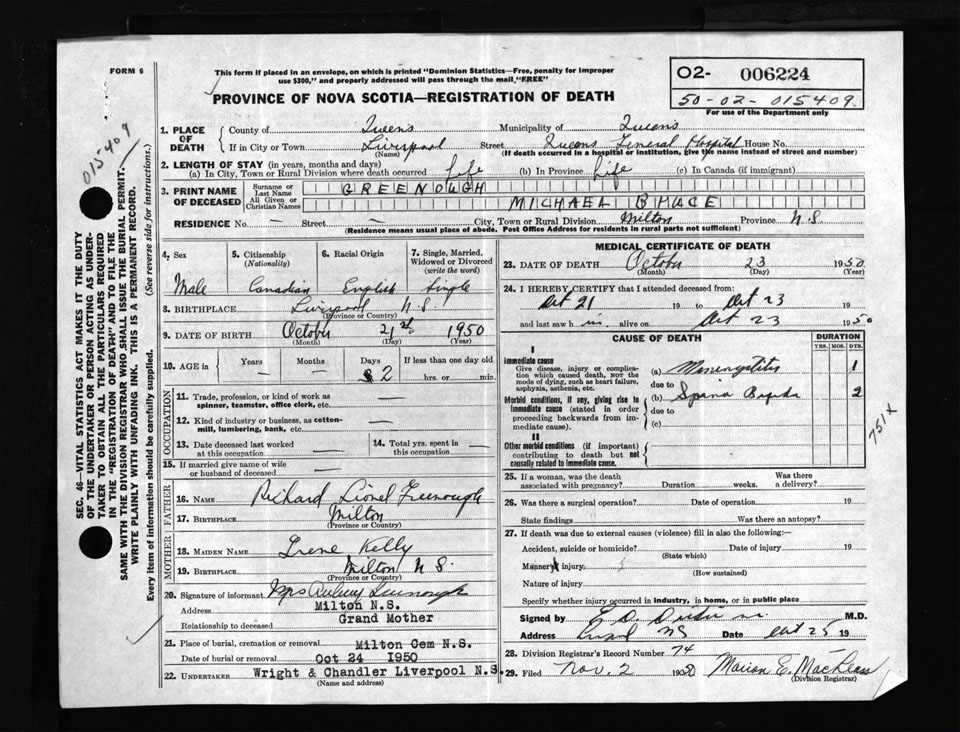 FORM 6
This form if placed in an envelope, on which is printed "Dominion Statistics—Free, penalty for improper
use $300," and properly addressed will pass through the mail "FREE"
02- 006224
50-02-015409
For use of the Department only
PROVINCE OF NOVA SCOTIA—REGISTRATION OF DEATH
015409
SEC. 46—VITAL STATISTICS ACT MAKES IT THE DUTY
OF THE UNDERTAKER OR PERSON ACTING AS UNDER-
TAKER TO OBTAIN ALL THE PARTICULARS REQUIRED
IN THE "REGISTRATION OF DEATH" AND TO FILE THE
SAME WITH THE DIVISION REGISTRAR WHO SHALL ISSUE THE BURIAL PERMIT.
WRITE PLAINLY WITH UNFADING INK. THIS IS A PERMANENT RECORD.
Every item of information should be carefully supplied. (See reverse side for instructions.)
1. PLACE OF DEATH
County of Queens Municipality of Queens
If in City or Town Liverpool Street Queens General Hospital House No.
(Name) (If death occurred in a hospital or institution, give the name instead of street and number)
2. LENGTH OF STAY (in years, months and days)
(a) In City, Town or Rural Division where death occurred life (b) In Province Life (c) In Canada (if immigrant)
3. PRINT NAME OF DECEASED
Surname or Last Name GREENOUGH
All Given or Christian Names MICHAEL BRUCE
RESIDENCE No. — Street — City, Town or Rural Division Milton Province N S
(Residence means usual place of abode. Post Office Address for residents in rural parts not sufficient)
4. Sex 5. Citizenship (Nationality) 6. Racial Origin 7. Single, Married, Widowed or Divorced (write the word)
Male Canadian English Single
8. BIRTHPLACE Liverpool N.S.
(Province or Country)
9. DATE OF BIRTH October 21st 1950
(Month) (Day) (Year)
10. AGE in Years — Months — Days 2 If less than one day old hrs. or min.
OCCUPATION
11. Trade, profession, or kind of work as
spinner, teamster, office clerk, etc. —
12. Kind of industry or business, as cotton-
mill, lumbering, bank, etc. —
13. Date deceased last worked at this occupation — 14. Total yrs. spent in this occupation —
15. If married give name of wife
or husband of deceased —
FATHER
16. NAME Richard Lionel Greenough
17. BIRTHPLACE Milton
(Province or Country)
MOTHER
18. MAIDEN NAME Irene Kelly
19. BIRTHPLACE Milton N S.
(Province or Country)
20. Signature of informant Mrs Aubrey Greenough
Address Milton N.S.
Relationship to deceased Grand Mother
21. Place of burial, cremation or removal Milton Cem N.S.
Date of burial or removal Oct 24 1950
22. UNDERTAKER Wright & Chandler Liverpool N.S.
(Name and address)
MEDICAL CERTIFICATE OF DEATH
23. DATE OF DEATH October 23 1950
(Month) (Day) (Year)
24. I HEREBY CERTIFY that I attended deceased from:
Oct 21 19 to Oct 23 19
and last saw h im alive on Oct 23 1950
CAUSE OF DEATH DURATION
YRS. MOS. DYS.
I
Immediate cause
Give disease, injury or complica-
tion which caused death, NOT the
mode of dying, such as heart failure,
asphyxia, asthenia, etc.
(a) Meningitis 1
due to
Morbid conditions, if any, giving rise to
immediate cause (stated in order
proceeding backwards from im-
mediate cause).
(b) Spina Bifida 2
due to
(c)
751X
II
Other morbid conditions (if important)
contributing to death but not
causally related to immediate cause.
25. If a woman, was the death associated with pregnancy? Duration weeks. Was there a delivery?
26. Was there a surgical operation? Date of operation 19
State findings Was there an autopsy?
27. If death was due to external causes (violence) fill in also the following:
Accident, suicide or homicide? Date of injury 19
(State which)
Manner of injury.
(How sustained)
Nature of injury
Specify whether injury occurred in industry, in home, or in public place
Signed by E. D. M.D.
Address NS Date Oct 25 19
28. Division Registrar's Record Number 74
29. Filed Nov. 2 1950 Marion E. MacLean
(Division Registrar)